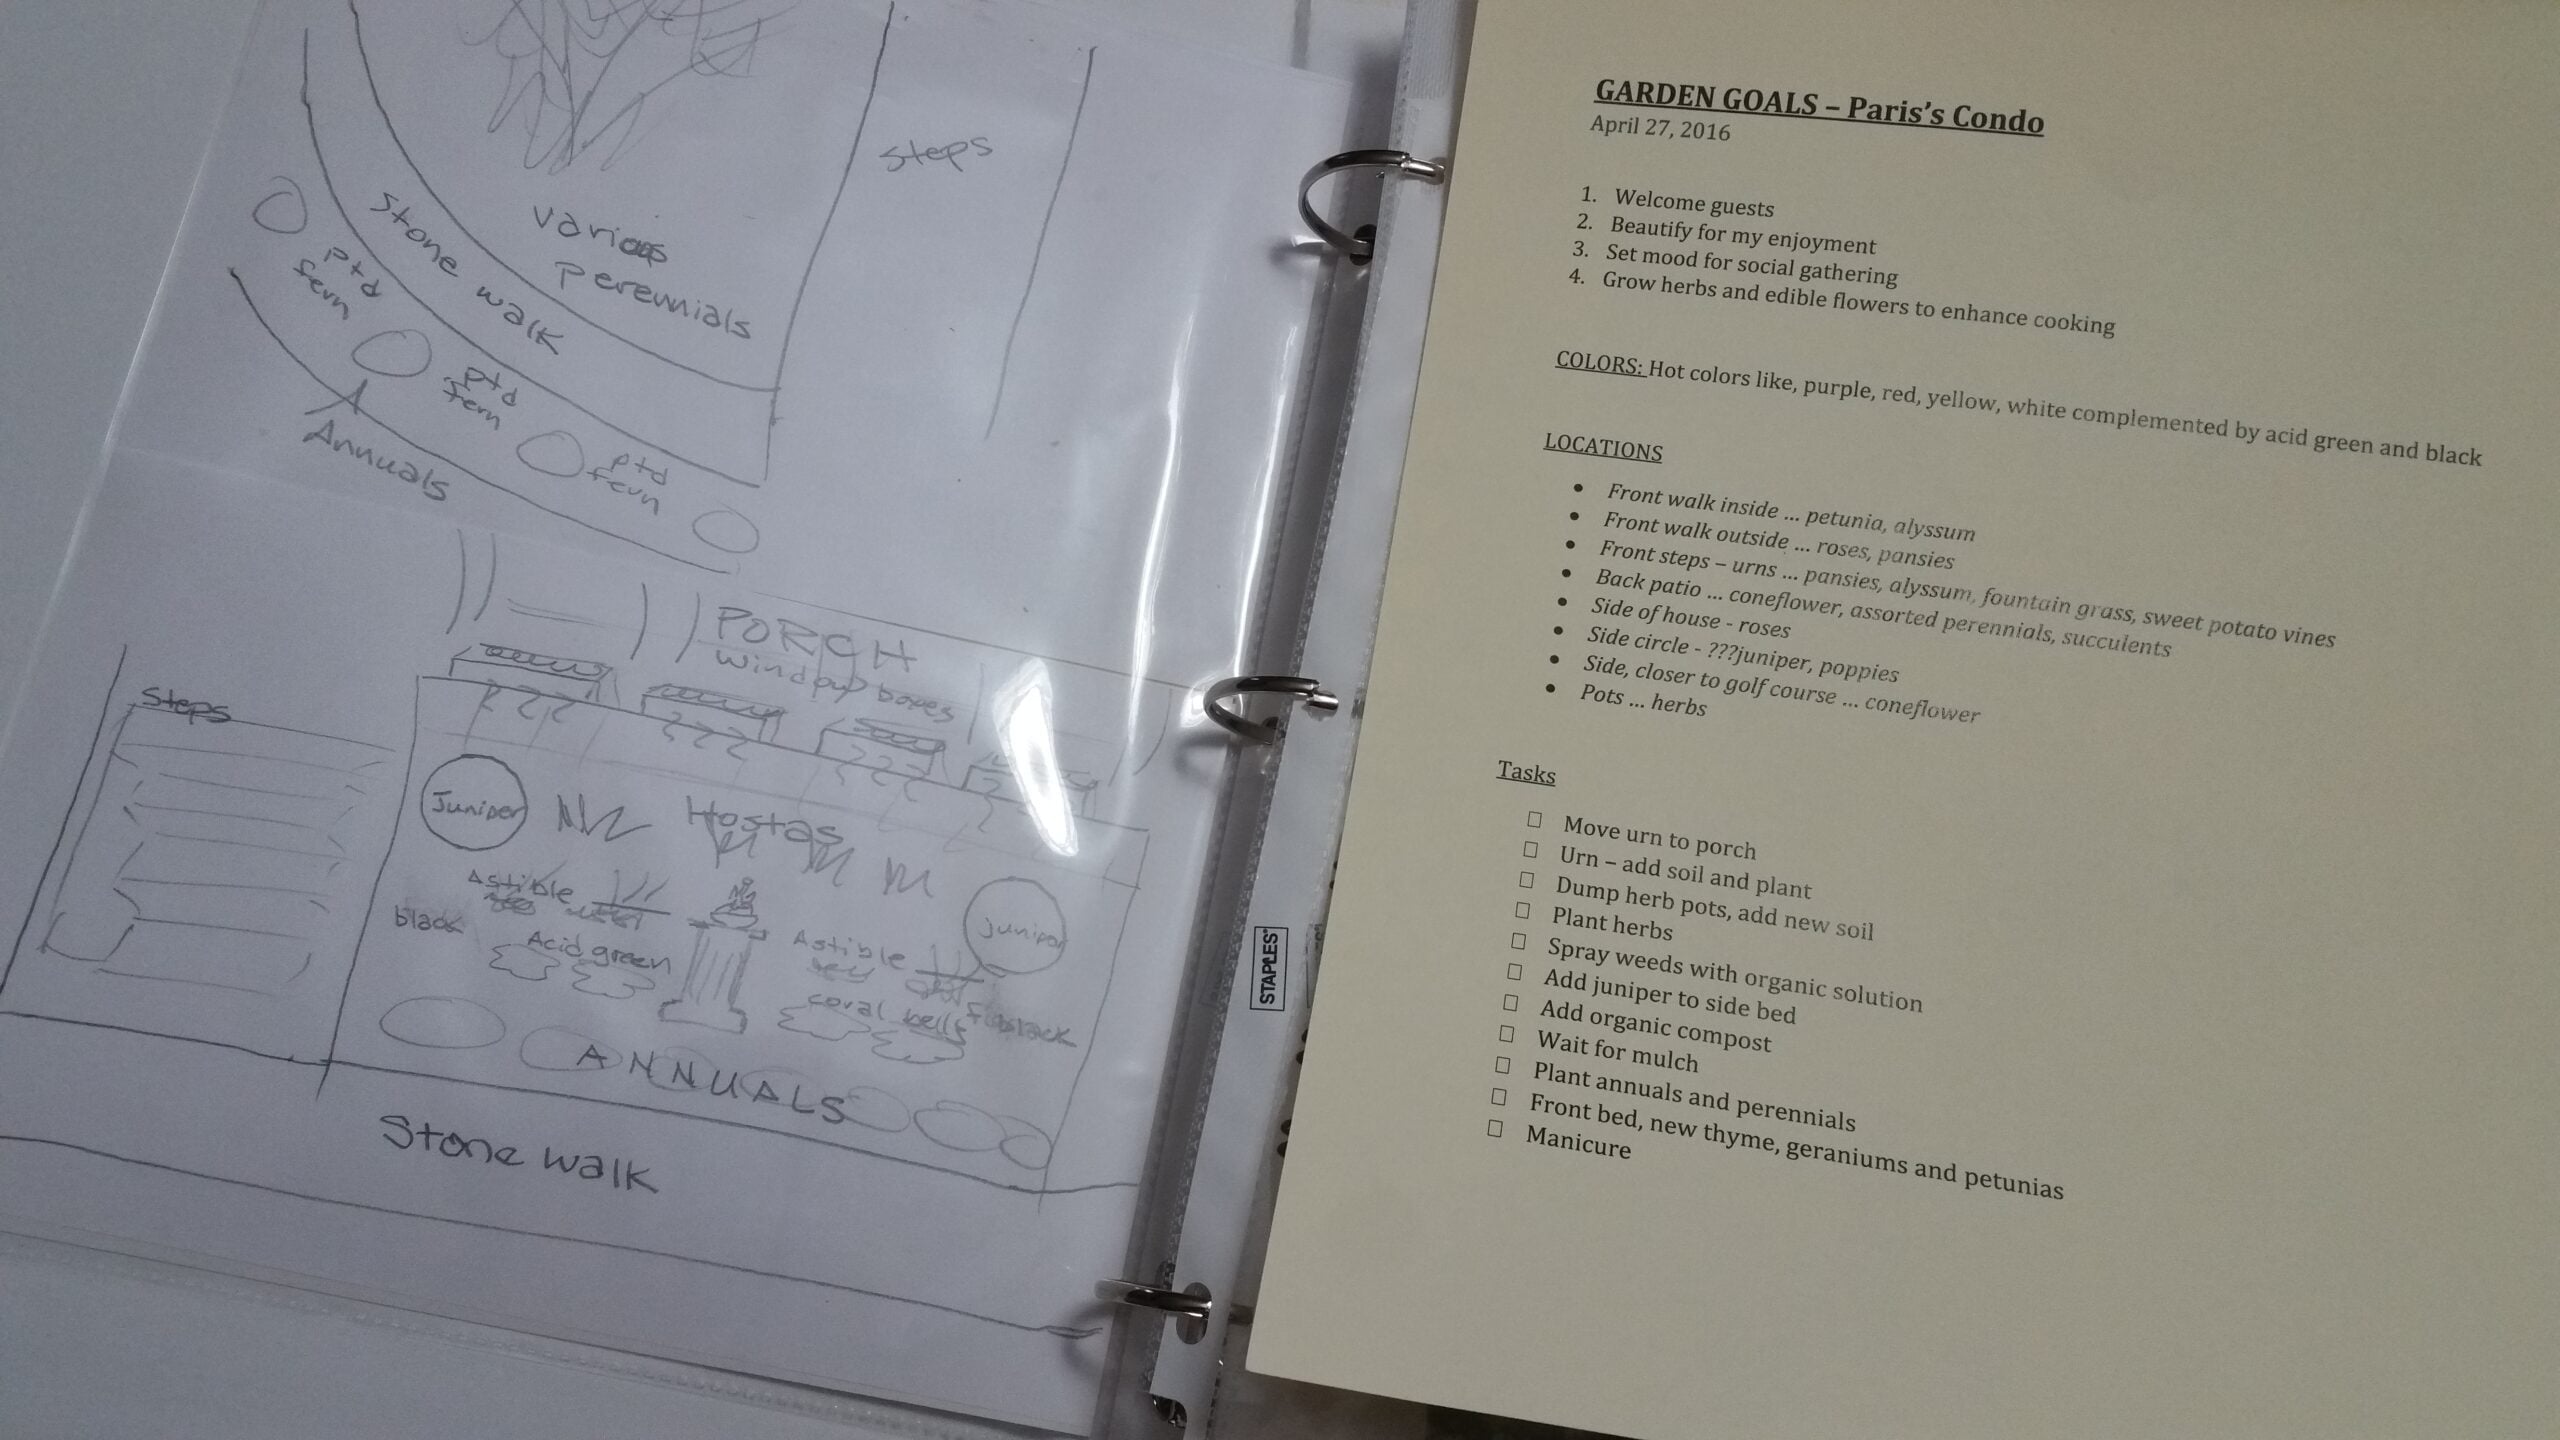 steps
various
perennials
stone walk
ptd
fern
ptd
fern
ptd
fern
Annuals
PORCH
window boxes
steps
Juniper
Hostas
Astible
black
Acid green
Astible
juniper
coral bells
black
ANNUALS
Stone walk
STAPLES
GARDEN GOALS – Paris's Condo
April 27, 2016
1. Welcome guests
2. Beautify for my enjoyment
3. Set mood for social gathering
4. Grow herbs and edible flowers to enhance cooking
COLORS: Hot colors like, purple, red, yellow, white complemented by acid green and black
LOCATIONS
• Front walk inside ... petunia, alyssum
• Front walk outside ... roses, pansies
• Front steps – urns ... pansies, alyssum, fountain grass, sweet potato vines
• Back patio ... coneflower, assorted perennials, succulents
• Side of house - roses
• Side circle - ???juniper, poppies
• Side, closer to golf course ... coneflower
• Pots ... herbs
Tasks
☐ Move urn to porch
☐ Urn – add soil and plant
☐ Dump herb pots, add new soil
☐ Plant herbs
☐ Spray weeds with organic solution
☐ Add juniper to side bed
☐ Add organic compost
☐ Wait for mulch
☐ Plant annuals and perennials
☐ Front bed, new thyme, geraniums and petunias
☐ Manicure